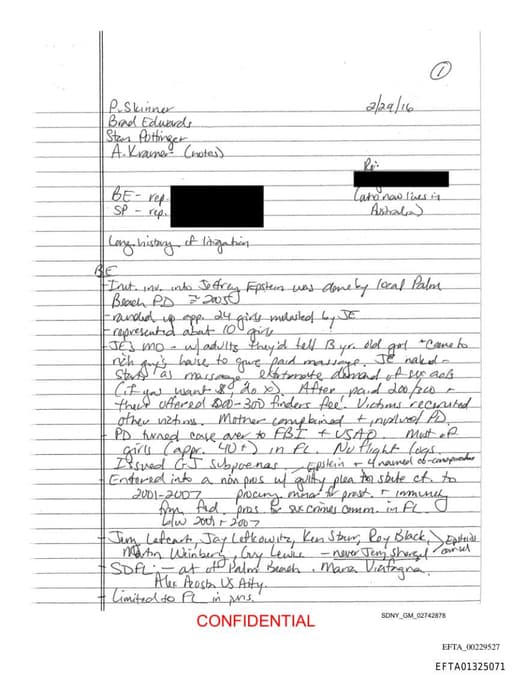 1
P. Skinner 2/29/16
Brad Edwards
Stan Pottinger
A. Kramer - (notes)
Re:
BE - rep. (atty now lives in
SP - rep. Australia)
Long history of litigation
BE
- Init. inv. into Jeffrey Epstein was done by local Palm
Beach PD ≈ 2005
- rounded up app. 24 girls molested by JE
- represented about 10 girls
- JE's MO - w/adults they'd tell 13 yr. old girl "come to
rich guy's house to give paid massage. JE naked -
starts as massage demand of sex acts
(if you want $ do x). After paid 200/300 +
then offered $200-300 finders fee'. Victims recruited
other victims. Mother complained + involved PD.
- PD turned case over to FBI + USAO. Most of
girls (appr. 40+) in FL. No flight logs.
Issued GJ subpoenas. Epstein + 4 named co-conspirators
- Entered into a non pros w/ guilty plea to state ct. to
2001-2007 procuring minor for prost. + immunity
from fed. pros for sex crimes comm. in FL
b/w 2001 + 2007
- Jay Lefkowitz, Ken Starr, Roy Black, Epstein's
Martin Weinberg, Guy Lewis - never counsel
- SDFL - at Palm Beach. Marie
Alex Acosta US Atty.
- Limited to FL in
CONFIDENTIAL
SDNY_GM_02742878
EFTA_00229527
EFTA01325071